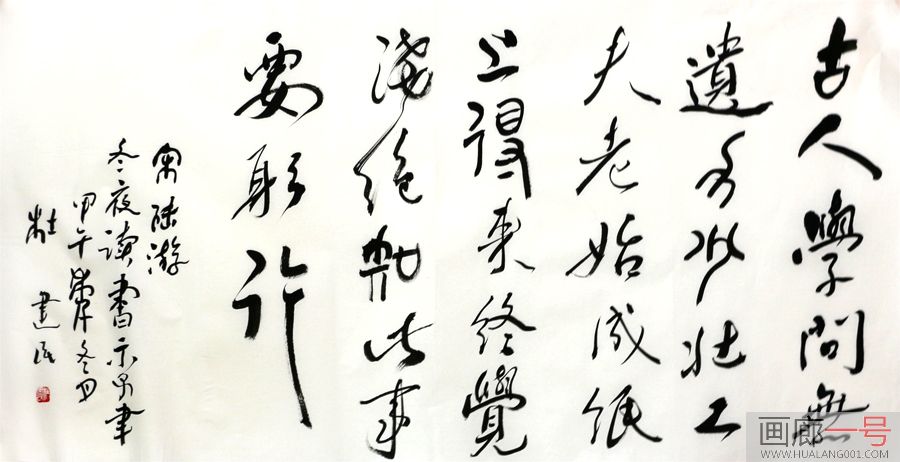 古人學問無
遺力少壯工
夫老始成紙
上得来終覺
淺絶知此事
要躬行
宋陸游
冬夜读書示子聿
甲午冬月
建民
画廊一号
WWW.HUALANG001.COM